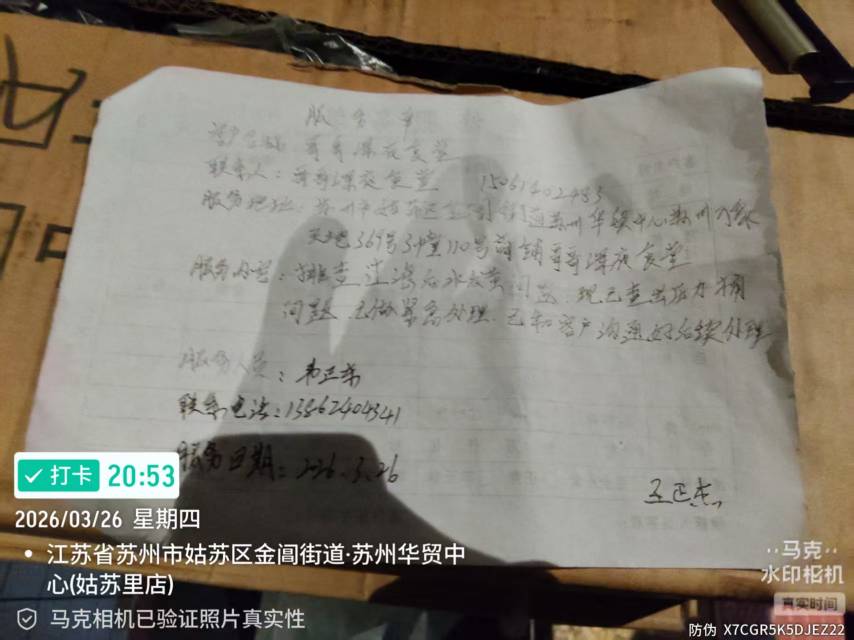 服务单
客户名称：哥哥深夜食堂
联系人：哥哥深夜食堂 15061402483
服务地址：苏州市姑苏区金阊街道苏州华贸中心苏州
天地369号 110号商铺哥哥深夜食堂
服务内容：排查过滤后水 问题，现已查出压力桶
问题，已做紧急处理，已和客户沟通好后续处理
服务人员：韦正荣
联系电话：13862404341
服务日期：226.3.26
王正杰
打卡 20:53
2026/03/26 星期四
江苏省苏州市姑苏区金阊街道·苏州华贸中
心(姑苏里店)
马克相机已验证照片真实性
马克
水印相机
真实时间
防伪 X7CGR5K5DJEZ22